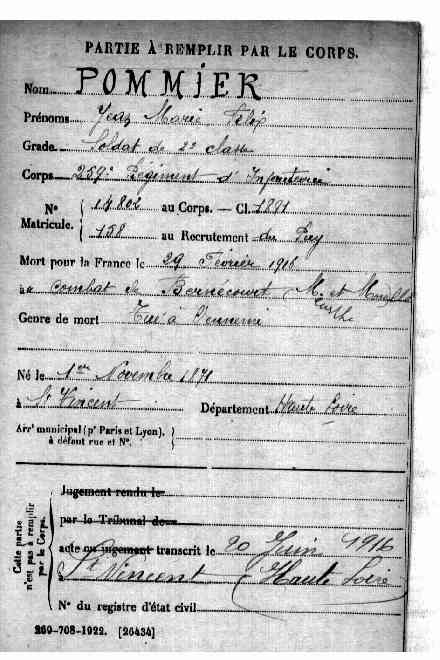 PARTIE À REMPLIR PAR LE CORPS.
Nom POMMIER
Prénoms Jean Marie Félix
Grade Soldat de 2e classe
Corps 259e Régiment d'Infanterie
No Matricule. { 14802 au Corps. — Cl. 1891
158 au Recrutement du Puy
Mort pour la France le 29 Février 1916
au combat de Bernécourt (Meurthe et Moselle
Genre de mort Tué à l'ennemi
Né le 1er Novembre 1871
à St Vincent Département Haute Loire
Arrt municipal (pr Paris et Lyon), à défaut rue et No. }
Cette partie n'est pas à remplir par le Corps.
Jugement rendu le
par le Tribunal de
acte ou jugement transcrit le 20 Juin 1916
à St Vincent (Haute Loire
No du registre d'état civil
269-708-1922. [26434]